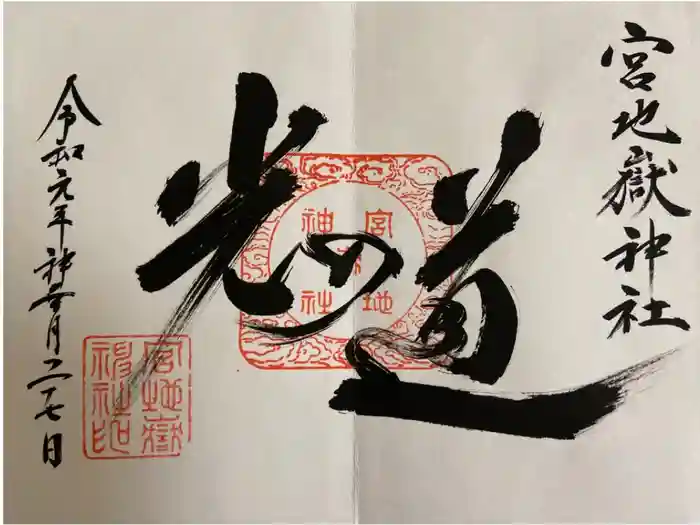 宮地嶽神社
光の道
宮地嶽神社
令和元年神無月二十七日
宮地嶽
神社印